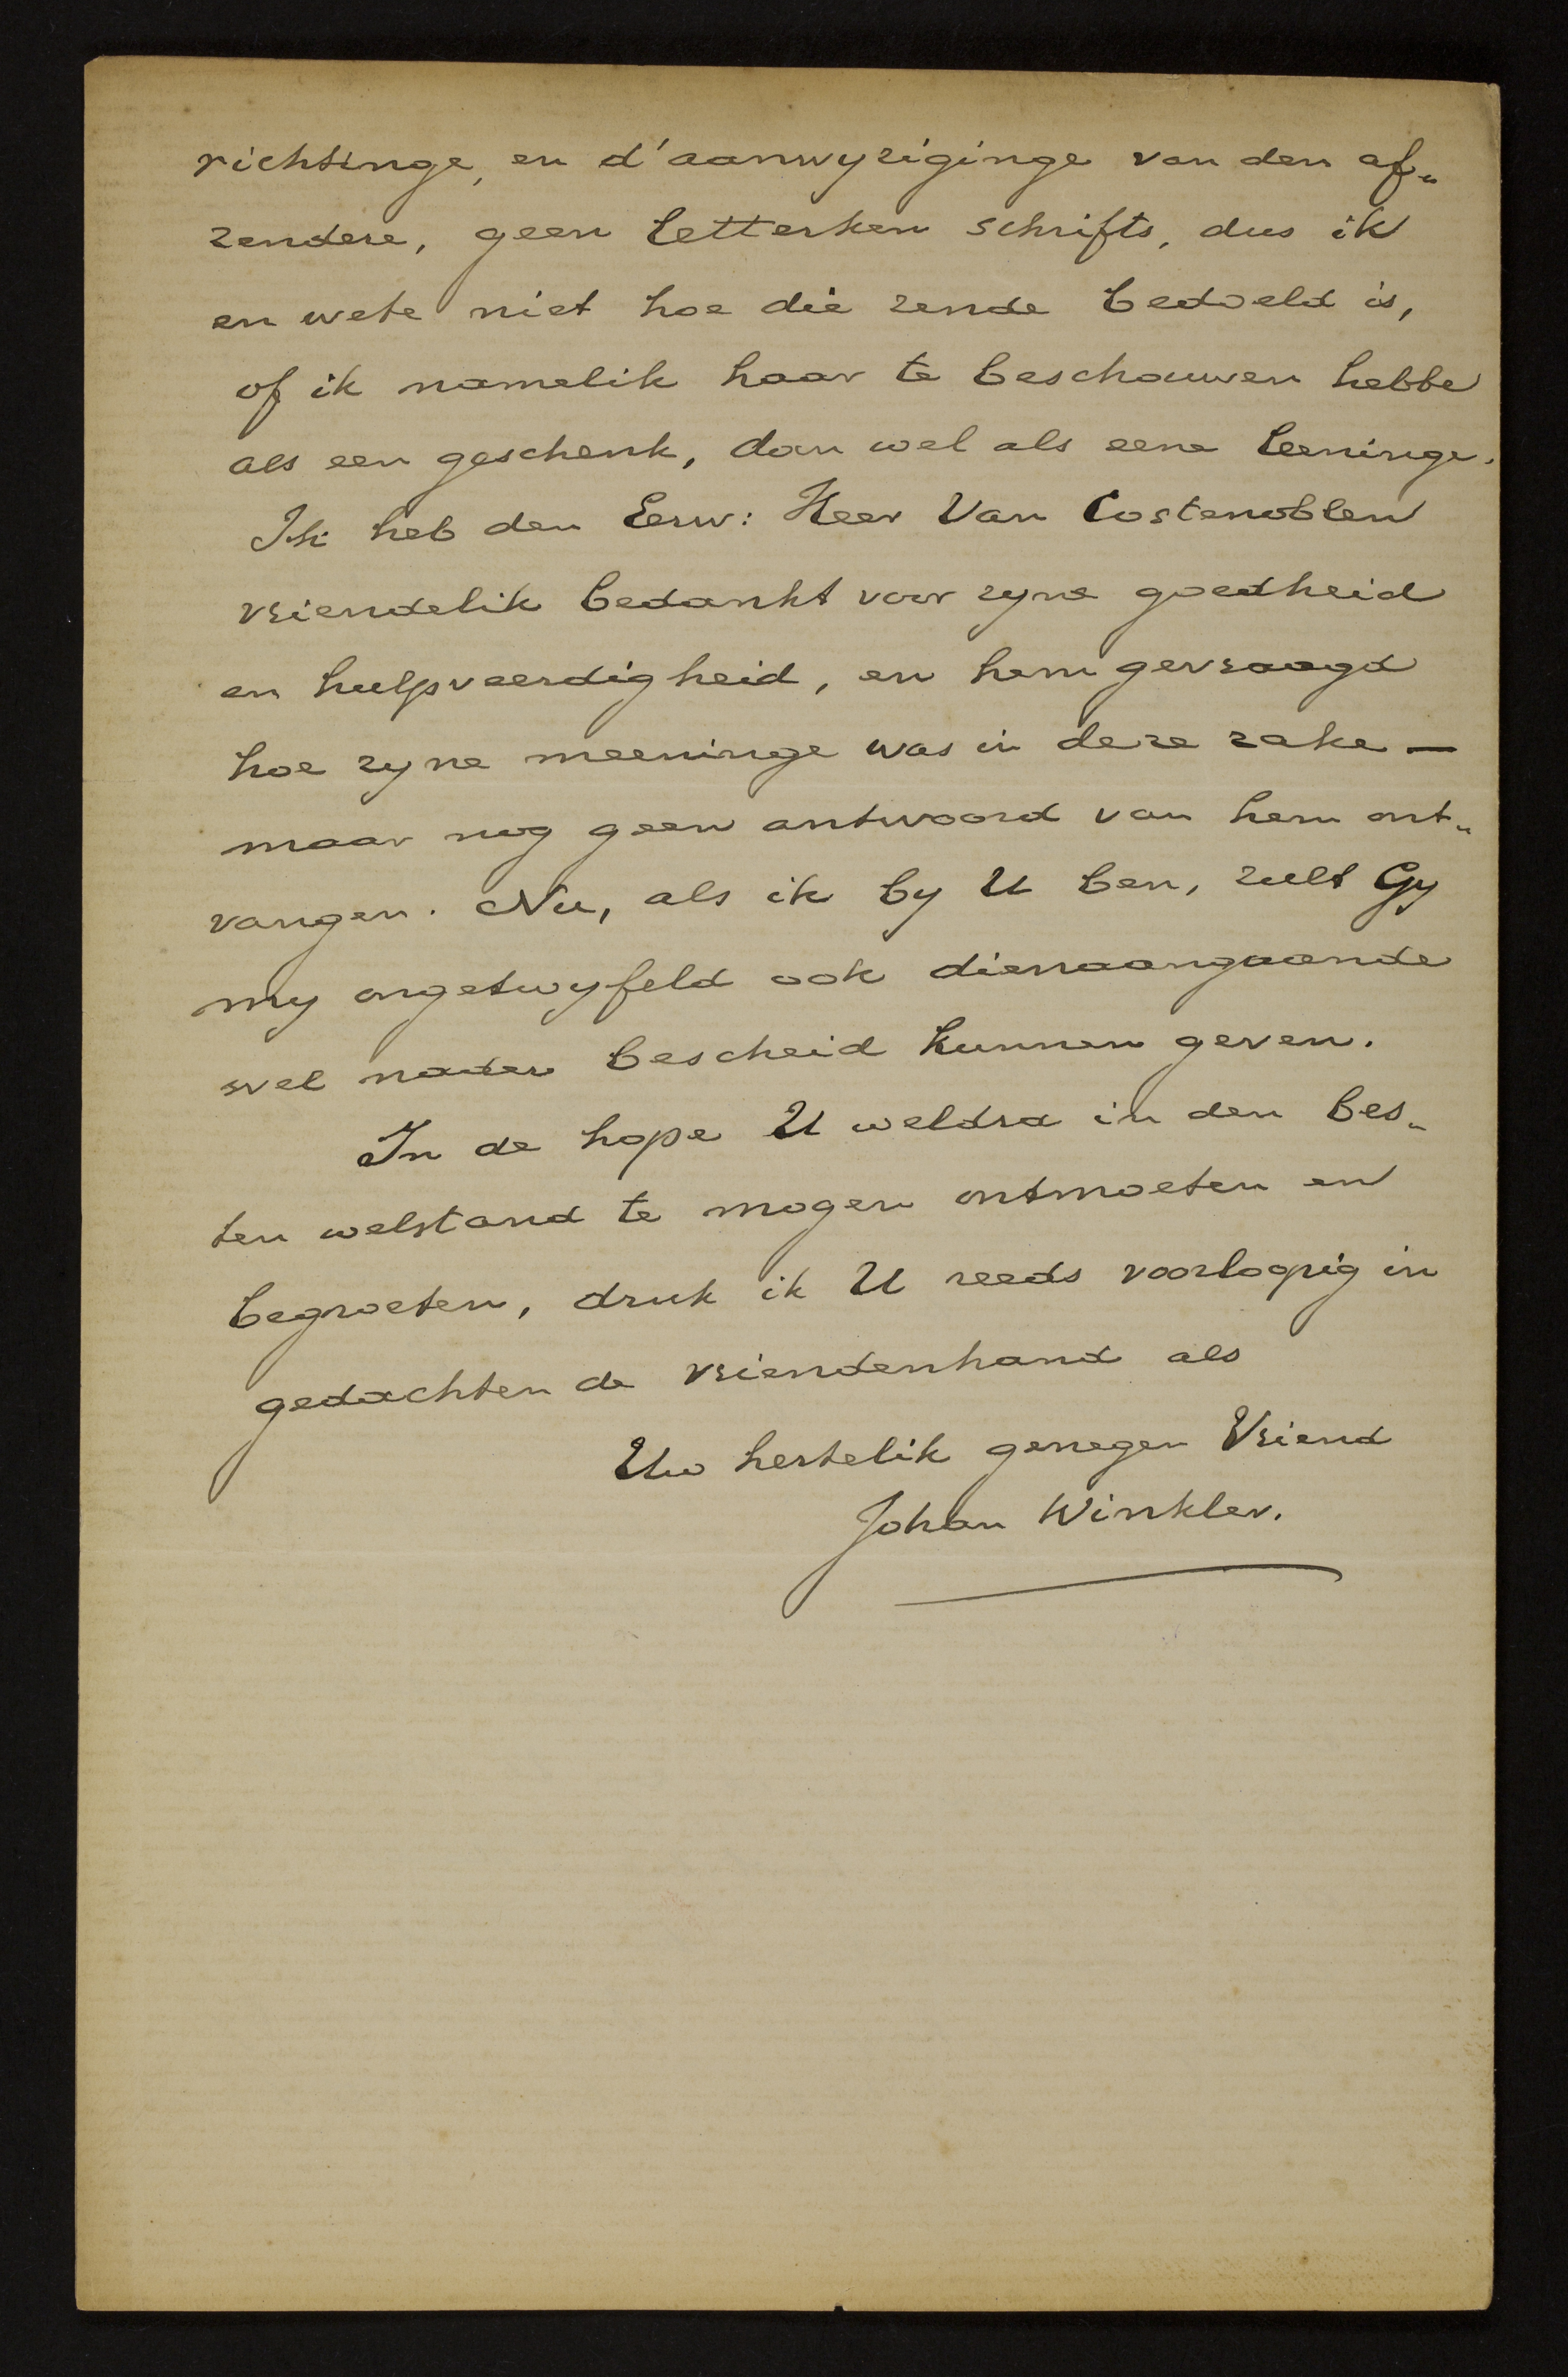 richtinge, en d'aanwyziginge van den af„
zendere, geen letterken schrifts, dus ik
en wete niet hoe die zende bedoeld is,
of ik namelik haar te beschouwen hebbe
als een geschenk, dan wel als eene leeninge.
Ik heb den Eerw: Heer Van Costenoblen
vriendelik bedankt voor zyne goedheid
en hulpveerdigheid, en hem gevraagd
hoe zyne meeninge was in deze zake —
maar nog geen antwoord van hem ont„
vangen. Nu, als ik by U ben, zult Gy
my ongetwyfeld ook dienaangaande
wel nader bescheid kunnen geven.
In de hope U weldra in den bes„
ten welstand te mogen ontmoeten en
begroeten, druk ik U reeds voorloopig in
gedachten de vriendenhand als
Uw hertelik genegen Vriend
Johan Winkler.